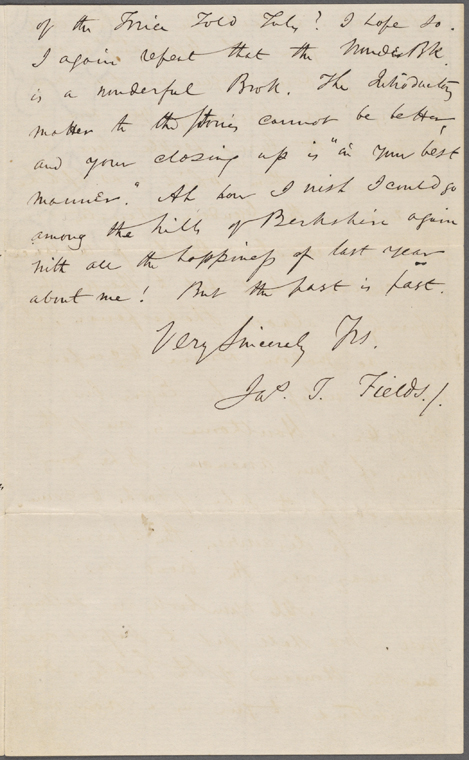 of the Twice Told Tales? I hope so.
I again repeat that the Wonder Bk.
is a wonderful Book. The Introductory
matter to the stories cannot be better,
and your closing up is "in your best
manner." Ah how I wish I could go
among the hills of Berkshire again
with all the happiness of last year
about me! But the past is past.
Very Sincerely Yrs.
Jas. T. Fields./.